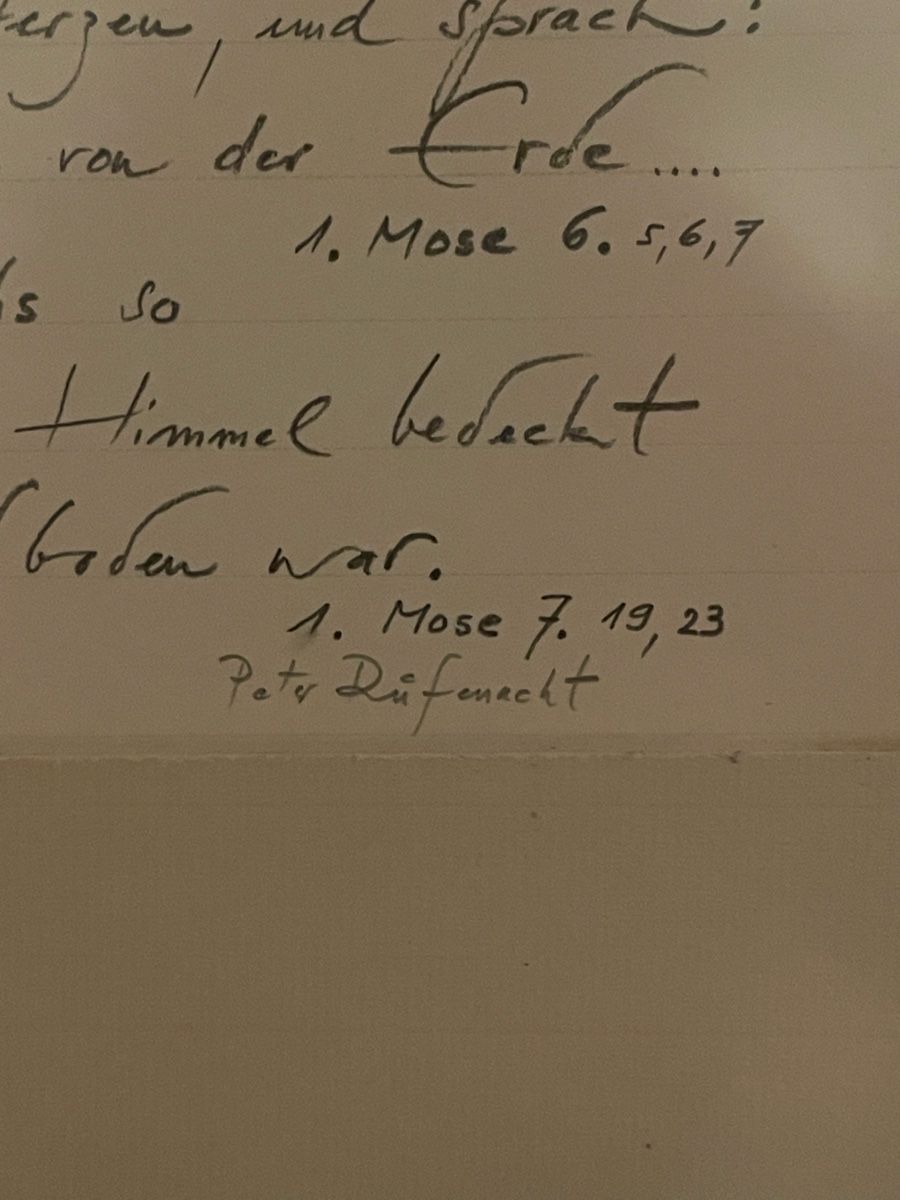 erzen, und sprach:
von der Erde ....
1. Mose 6. 5,6,7
s so
Himmel bedeckt
boden war.
1. Mose 7. 19, 23
Peter Rüfenacht